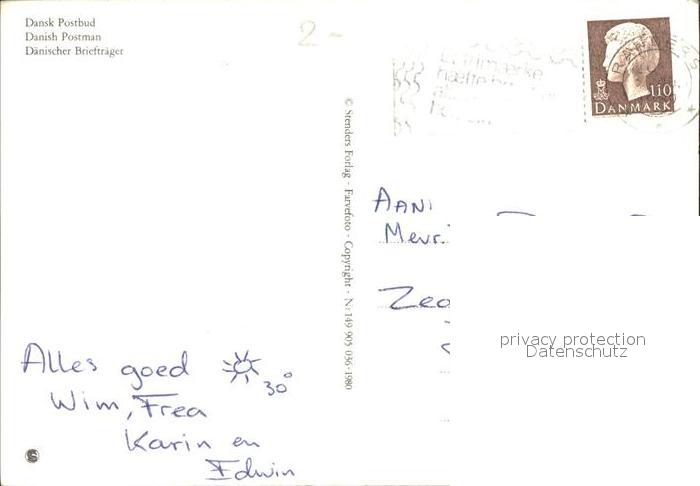 Dansk Postbud
Danish Postman
Dänischer Briefträger
2-
110
DANMARK
© Stenders Forlag - Farvefoto - Copyright - Nr. 149 905 036-1980
AANI
Mevr.
Zeg
privacy protection
Datenschutz
Alles goed 30°
Wim, Frea
Karin en
Edwin